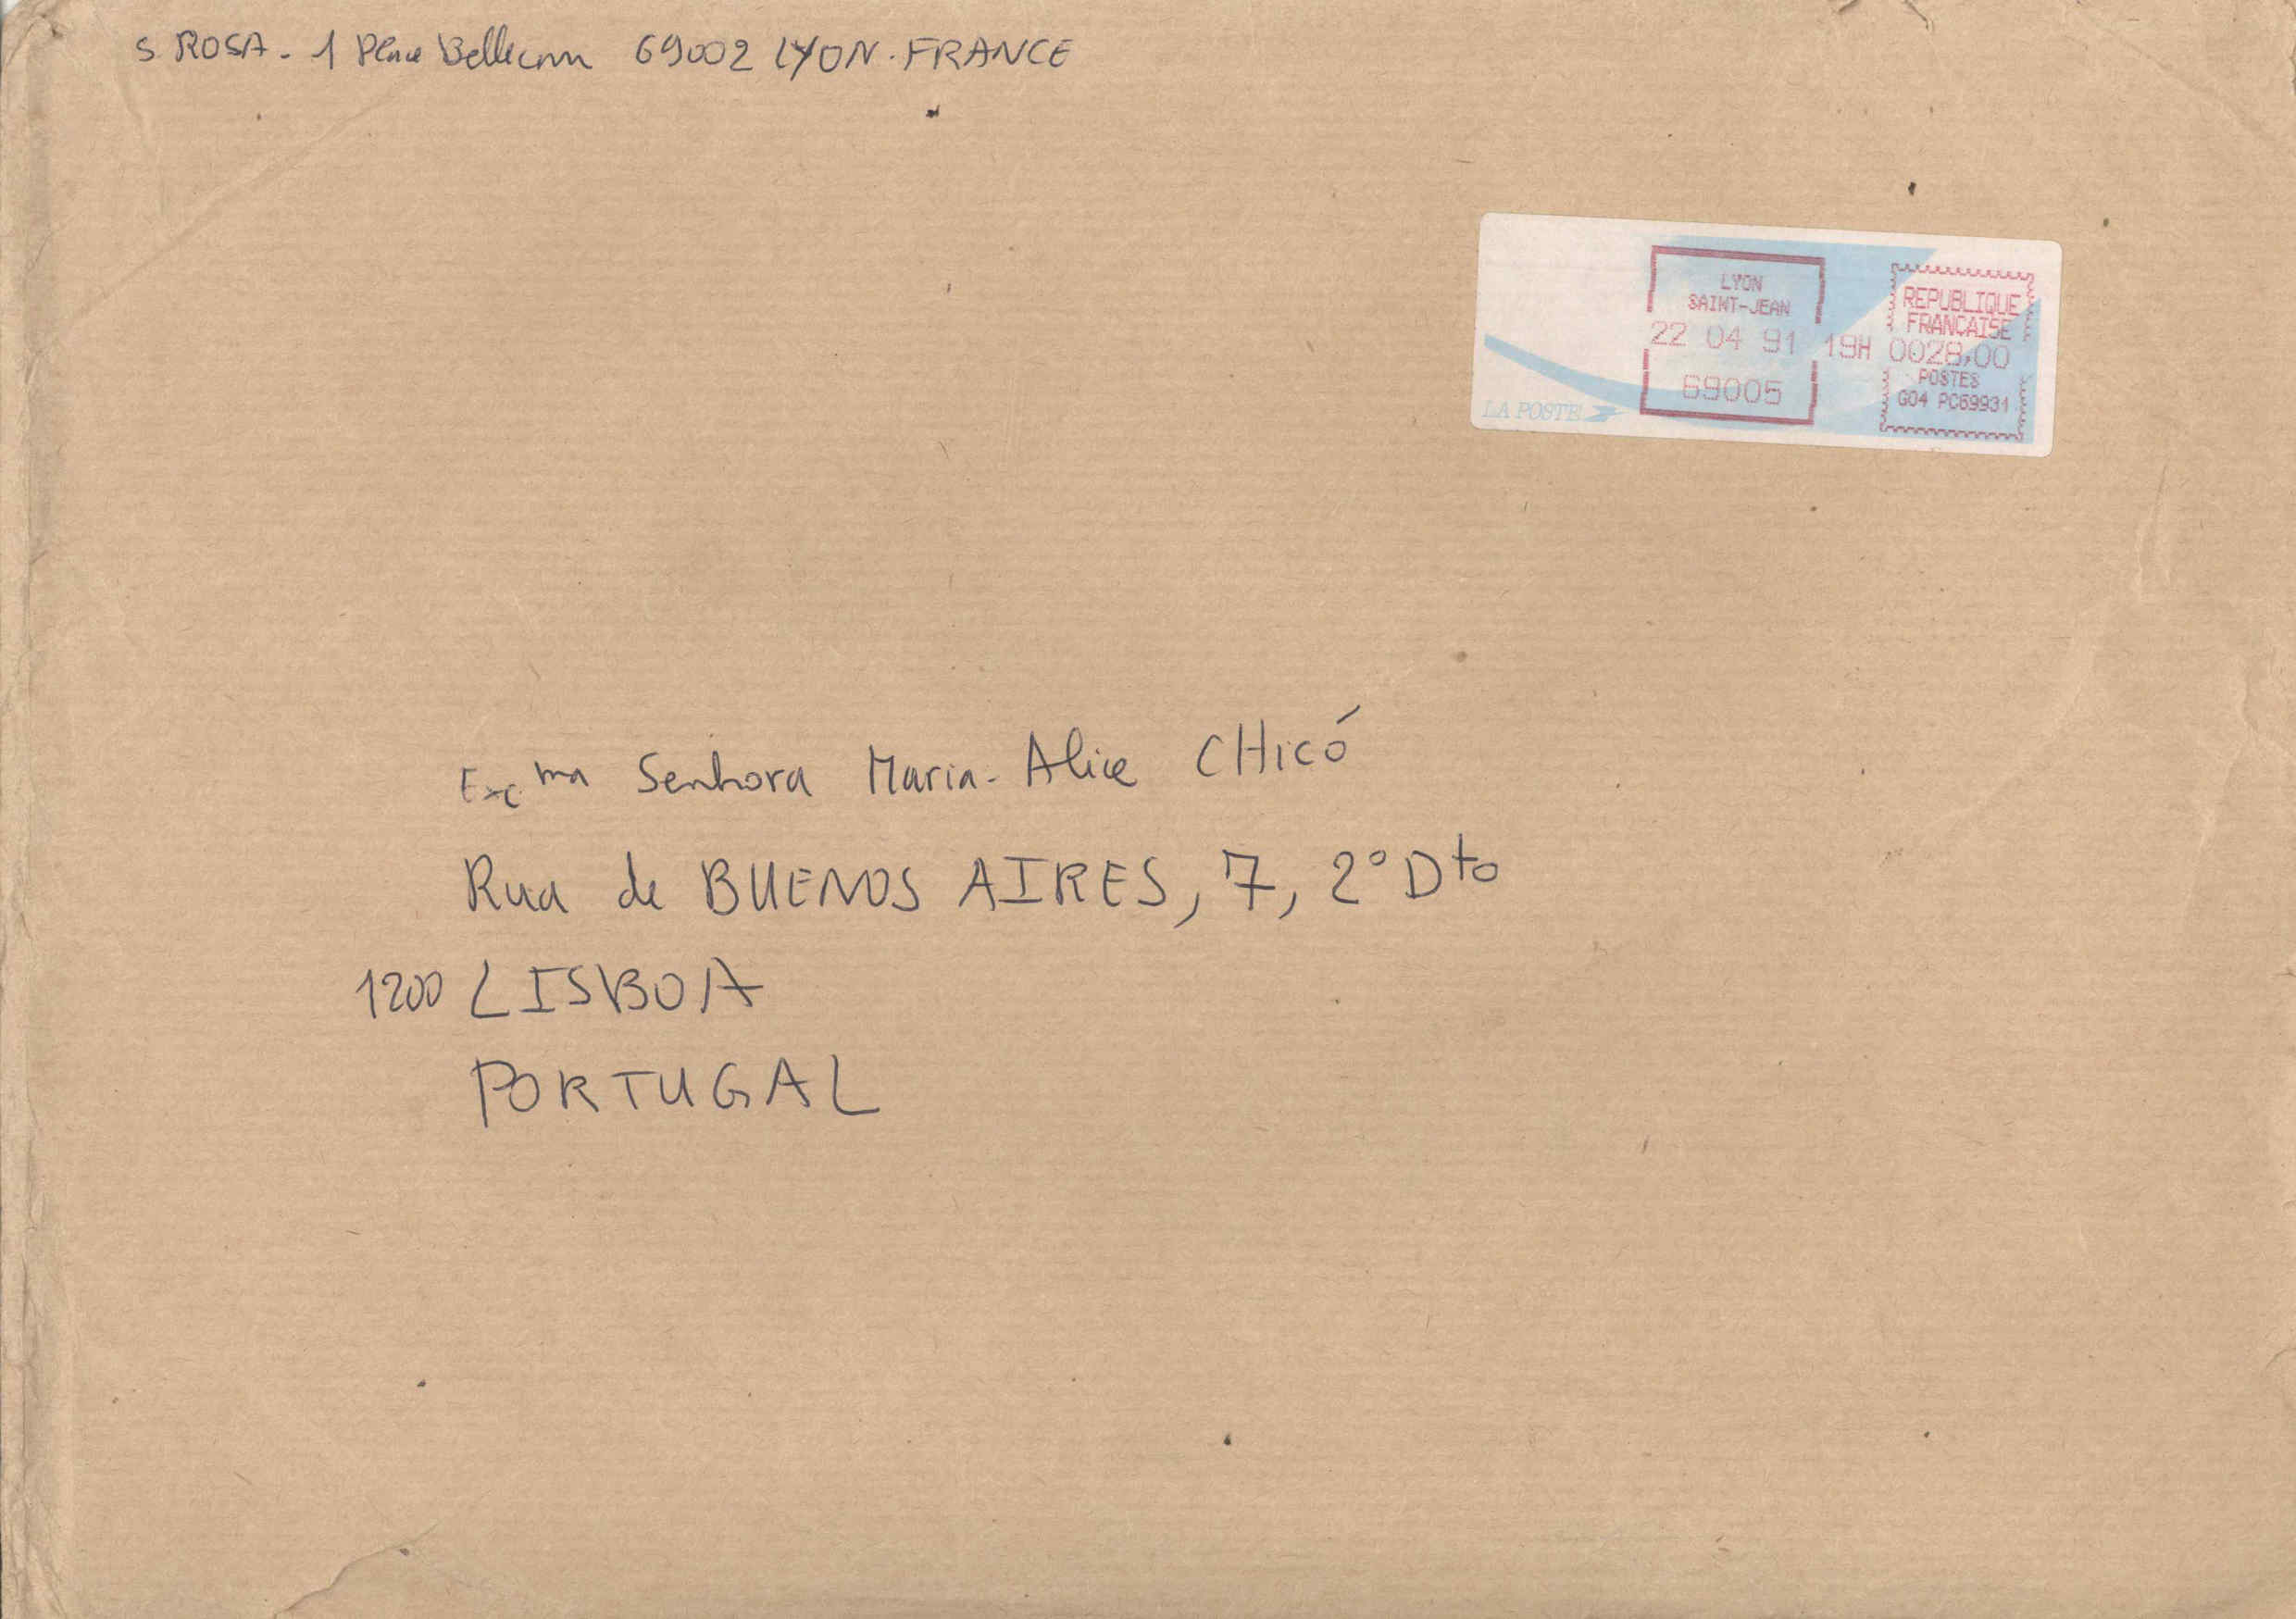 S. ROSA - 1 Place Bellecour 69002 LYON. FRANCE
LYON
SAINT-JEAN
22 04 91 19H
69005
REPUBLIQUE
FRANÇAISE
0028,00
POSTES
G04 PC69931
LA POSTE
Exc.ma Senhora Maria-Alice CHicó
Rua de BUENOS AIRES, 7, 2° Dto
1200 LISBOA
PORTUGAL